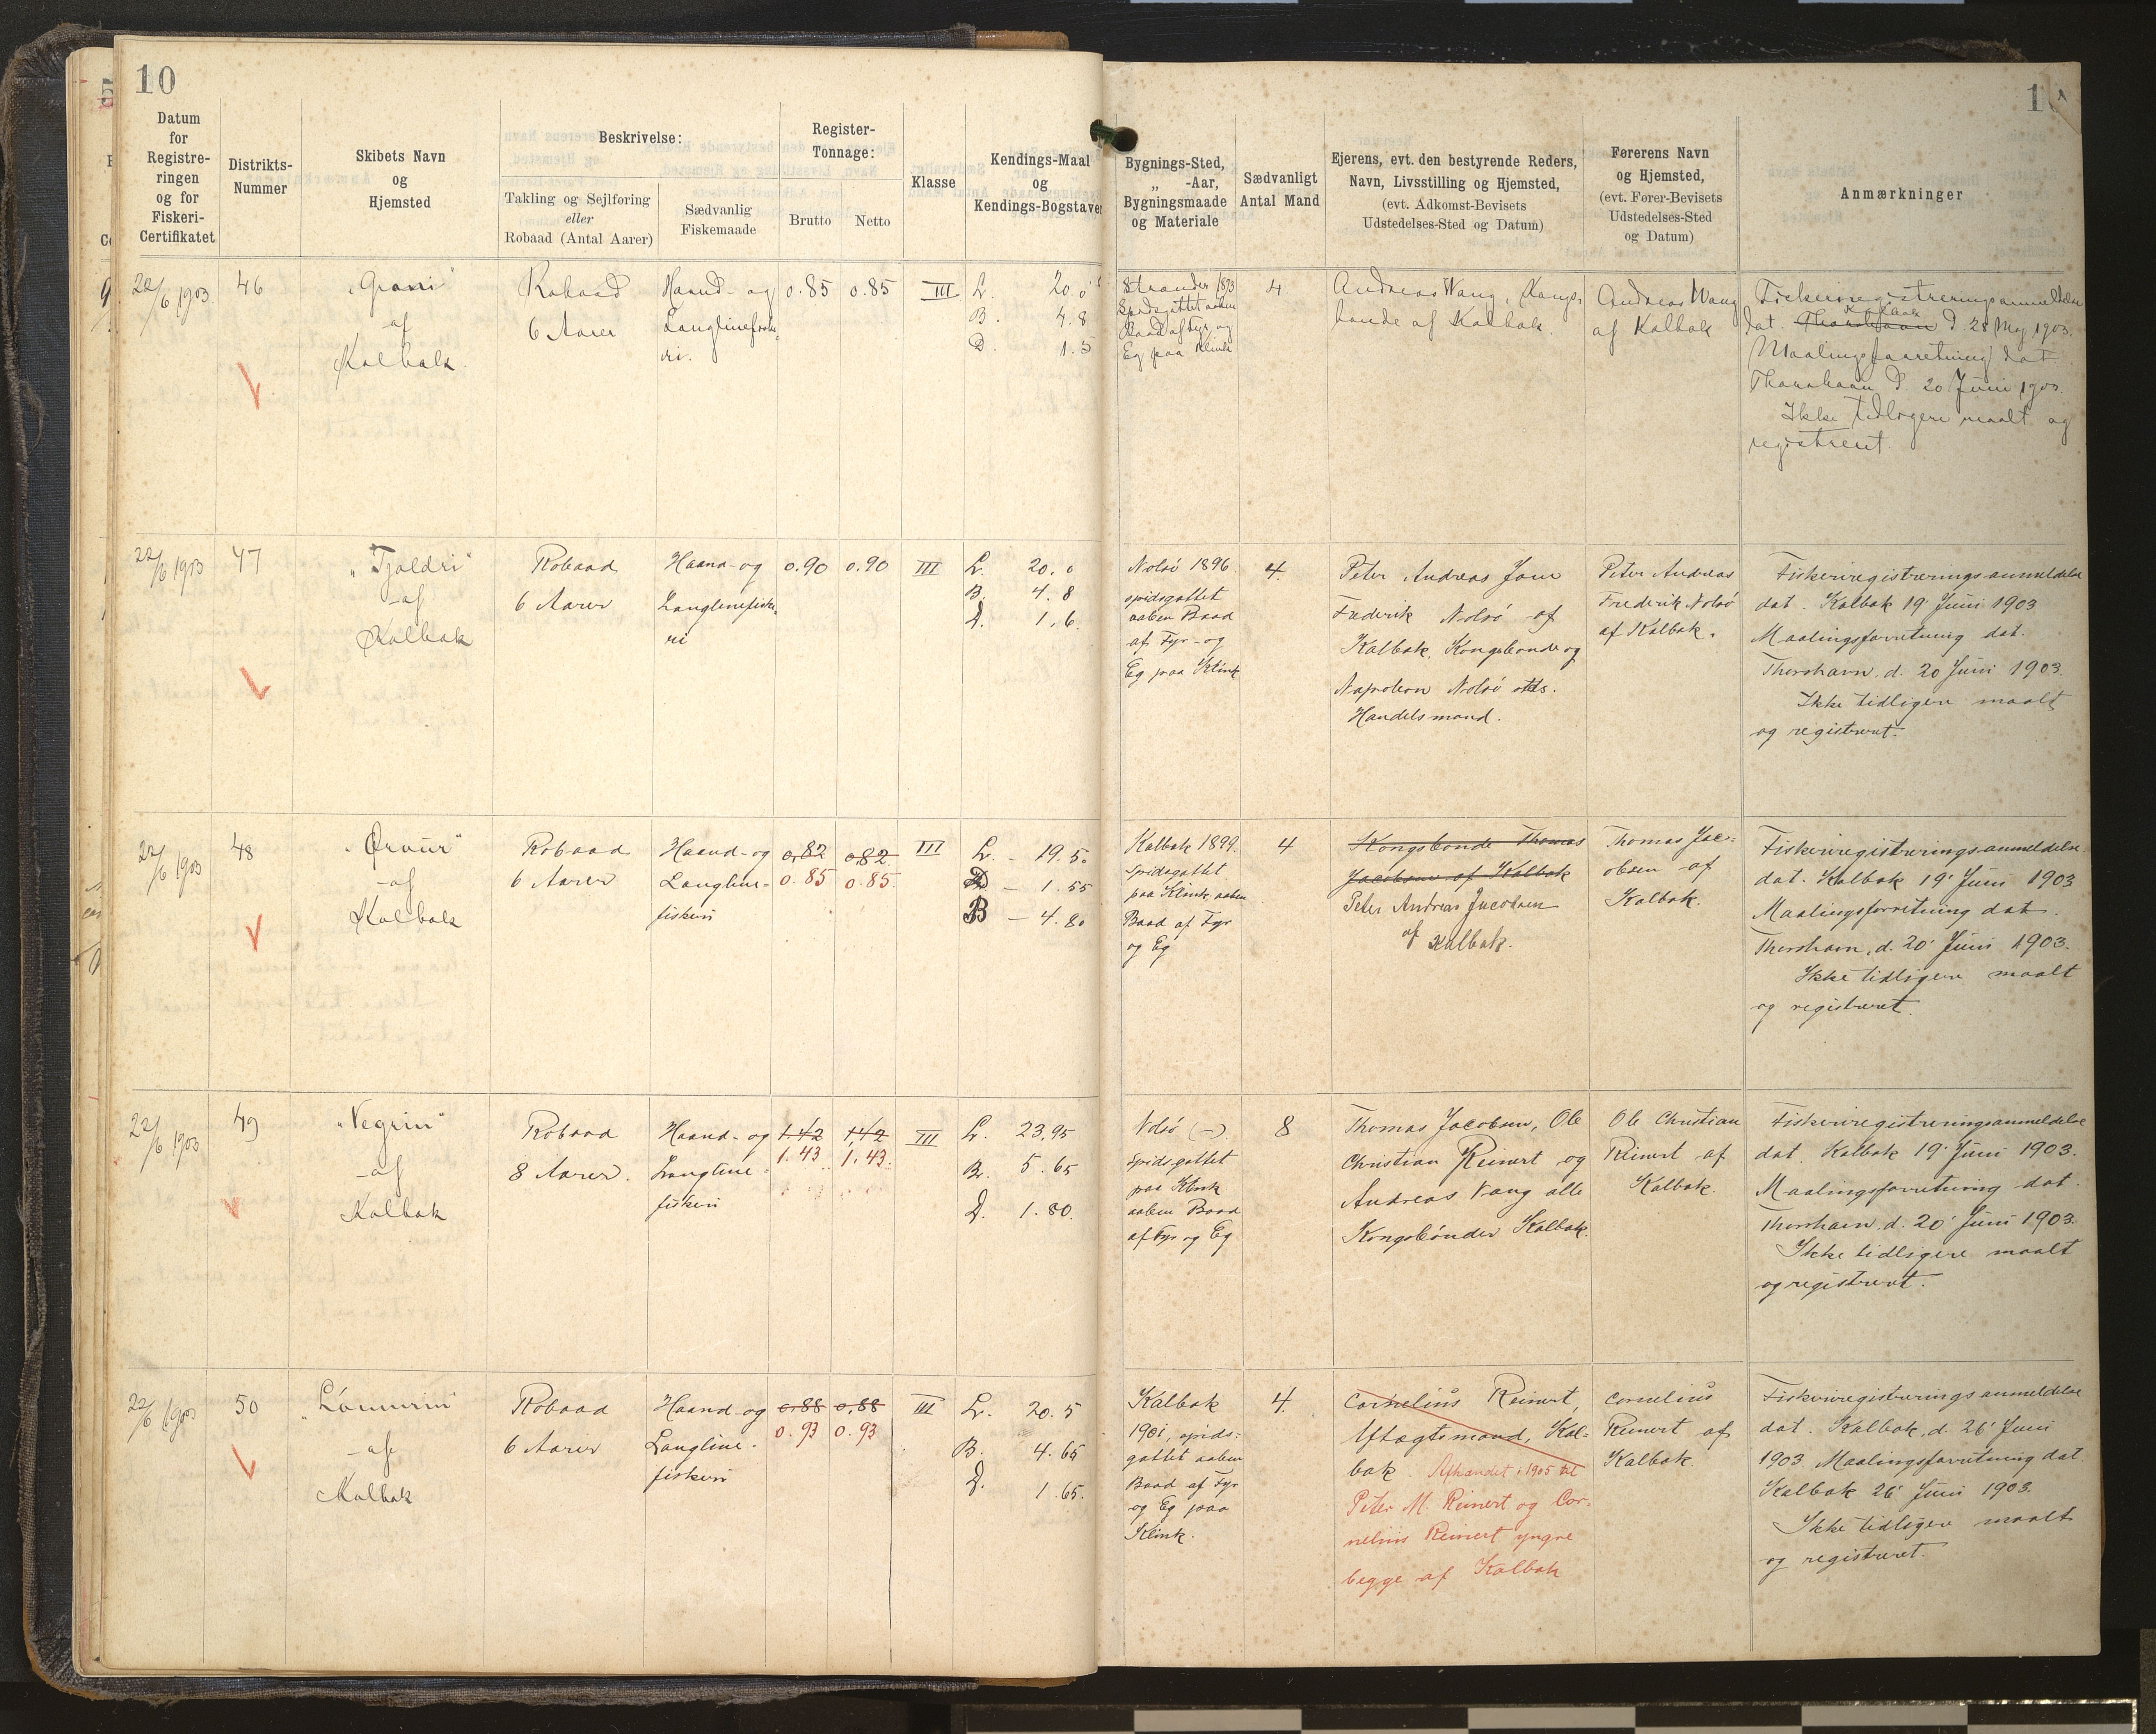 10
Datum
for
Registre-
ringen
og for
Fiskeri-
Certifikatet
Distrikts-
Nummer
Skibets Navn
og
Hjemsted
Beskrivelse:
Takling og Sejlføring
eller
Robaad (Antal Aarer)
Sædvanlig
Fiskemaade
Register-
Tonnage:
Brutto
Netto
Klasse
Kendings-Maal
og
Kendings-Bogstaver
Bygnings-Sted,
„ -Aar,
Bygningsmaade
og Materiale
Sædvanligt
Antal Mand
Ejerens, evt. den bestyrende Reders,
Navn, Livsstilling og Hjemsted,
(evt. Adkomst-Bevisets
Udstedelses-Sted og Datum)
Førerens Navn
og Hjemsted,
(evt. Fører-Bevisets
Udstedelses-Sted
og Datum)
Anmærkninger
22/6 1903
46
"Grani"
af
Kalbak
Robaad
6 Aarer
Haand- og
Langlinefiske-
ri.
0.85
0.85
III
L. 20.0
B. 4.8
D. 1.5
Strander 1893
Spidsgattet aaben
Baad af Fyr og
Eg paa Klink
4
Andreas Wang, Kongs-
bonde af Kalbak.
Andreas Wang
af Kalbak
Fiskeriregistreringsanmeldelse
Kalbak
dat. Thorshavn d. 28 Maj 1903.
Maalingsforretning dat.
Thorshavn d. 20 Juni 1903.
Ikke tidligere maalt og
registreret.
22/6 1903
47
"Tjaldri"
-af
Kalbak
Robaad
6 Aarer
Haand- og
Langlinefiske-
ri
0.90
0.90
III
L. 20.0
B. 4.8
D. 1.6.
Nolsö 1896.
spidsgattet
aaben Baad
af Fyr- og
Eg paa Klink
4.
Peter Andreas Jom
Frederik Nolsö af
Kalbak, Kongsbonde og
Napoleon Nolsö stds.
Handelsmand.
Peter Andreas
Frederik Nolsö
af Kalbak.
Fiskeriregistreringsanmeldelse
dat. Kalbak 19' Juni 1903
Maalingsforretning dat.
Thorshavn, d. 20 Juni 1903.
Ikke tidligere maalt
og registreret.
22/6 1903
48
"Ørvur"
-af
Kalbak
Robaad
6 Aarer
Haand- og
Langline-
fiskeri
0.82
0.85
0.82
0.85
III
L. - 19.5.
D - 1.55
B - 4.80
Kalbak 1899.
Spidsgattet
paa Klink, aaben
Baad af Fyr
og Eg
4
Kongsbonde Thomas
Jacobsen af Kalbak
Peter Andreas Jacobsen
af Kalbak.
Thomas Jac-
obsen af
Kalbak.
Fiskeriregistreringsanmeldelse
dat. Kalbak 19' Juni 1903
Maalingsforretning dat.
Thorshavn, d. 20' Juni 1903.
Ikke tidligere maalt
og registreret.
22/6 1903
49
"Vegrin"
-af
Kalbak
Robaad
8 Aarer.
Haand- og
Langline-
fiskeri
1.42
1.43
1.42
1.43.
III
L. 23.95
B. 5.65
D. 1.80.
Nolsö (-).
Spidsgattet
paa Klink
aaben Baad
af Fyr og Eg
8
Thomas Jacobsen, Ole
Christian Reinert og
Andreas Vang alle
Kongsbönder Kalbak.
Ole Christian
Reinert af
Kalbak.
Fiskeriregistreringsanmeldelse
dat. Kalbak 19' Juni 1903.
Maalingsforretning dat.
Thorshavn, d. 20' Juni 1903.
Ikke tidligere maalt
og registreret.
22/6 1903
50
"Lómurin"
-af
Kalbak
Robaad
6 Aarer
Haand- og
Langline-
fiskeri
0.88
0.93
0.88
0.93
III
L. 20.5
B. 4.65
D. 1.65.
Kalbak
1901, spids-
gattet aaben
Baad af Fyr
og Eg paa
Klink.
4.
Cornelius Reinert,
Aftægtsmand, Kal-
bak. Afhændet i 1905 til
Peter M. Reinert og Cor-
nelius Reinert yngre
begge af Kalbak
Cornelius
Reinert af
Kalbak.
Fiskeriregistreringsanmeldelse
dat. Kalbak, d. 26' Juni
1903. Maalingsforretning dat.
Kalbak 26' Juni 1903.
Ikke tidligere maalt
og registreret.